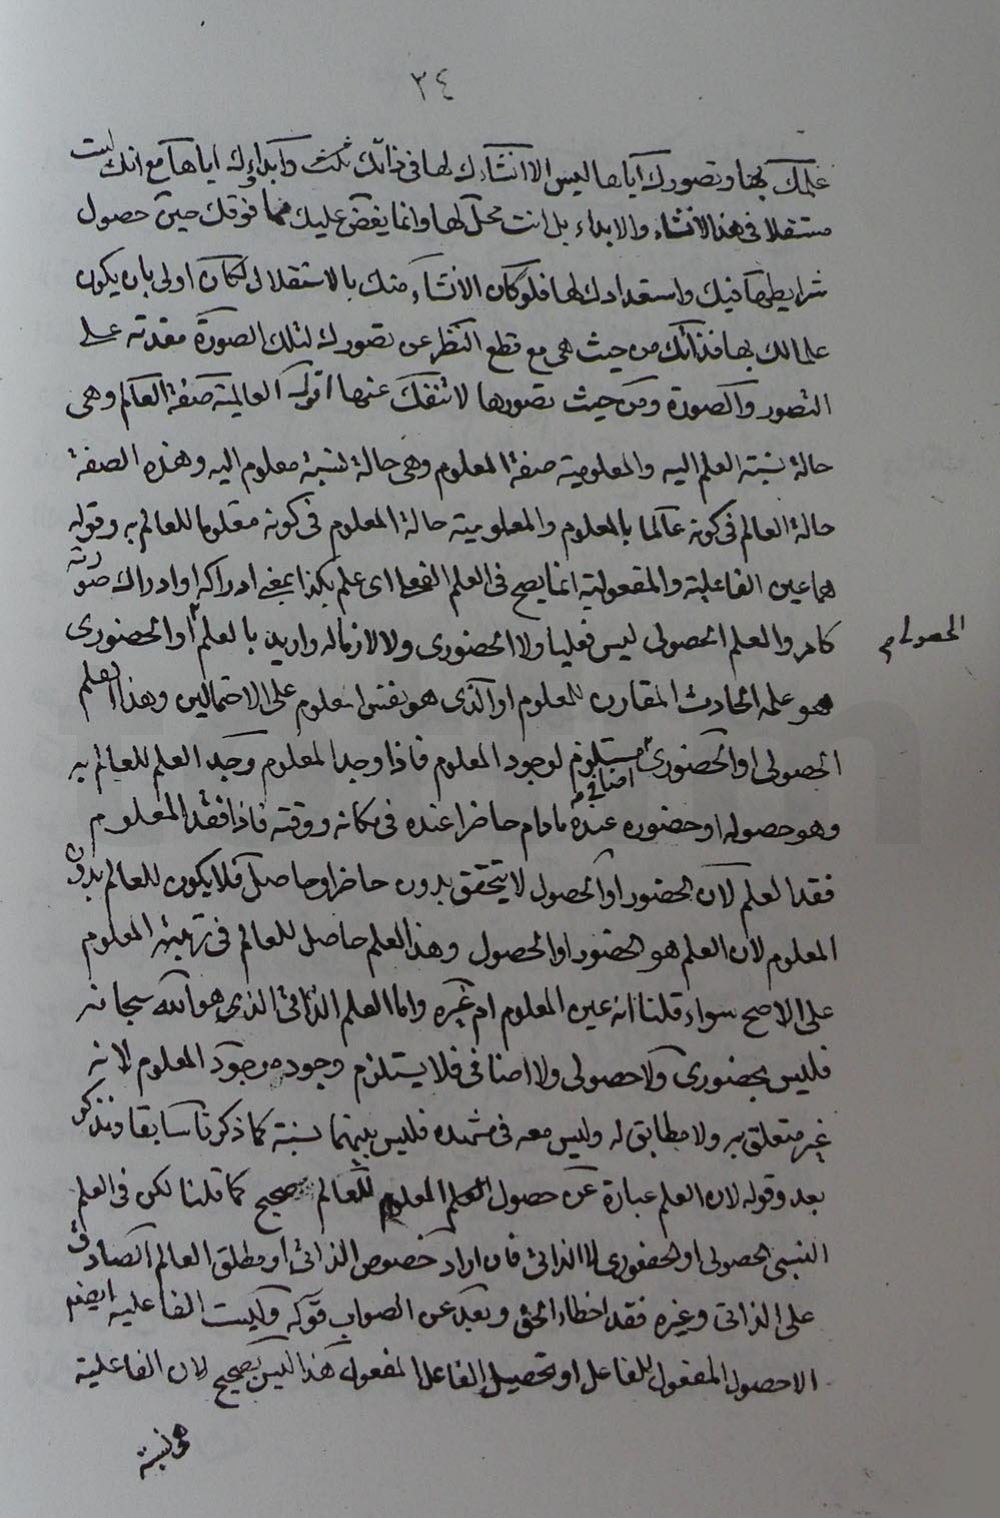 ٣٤
علمك بها وتصورك اياها ليس الا انشاءك لها في ذاتك وابداءك اياها مع انك لست
مستقلا في هذا الانشاء والابداء بل انت محل لها وانما يفض عليك مما فوقك حين حصول
شرايطها فيك واستعدادك لها فلو كان الانشاء منك بالاستقلال لكان اولى بان يكون
علما لك بها فذاتك من حيث هي مع قطع النظر عن تصورك لتلك الصورة مقدمة على
التصور والصورة ومن حيث تصورها لا تنفك عنها اقول العالمية صفة العالم وهي
حالة نسبة العلم اليه والمعلومية صفة المعلوم وهي حالة نسبة معلوم اليه وهذه الصفة
حالة العالم في كونه عالما بالمعلوم والمعلومية حالة المعلوم في كونه معلوما للعالم به وقوله
هما عين الفاعلية والمفعولية انما يصح في العلم الفعلي اي علم بكذا بمعنى ادراكه او ادراك صورته
كما مر والعلم الحصولي ليس فعليا ولا الحضوري ولا لازما له واريد بالعلم او الحضوري
الحصولي م
هو علمه الحادث المقارن للمعلوم او الذي هو نفس المعلوم على الاحتمالين وهذا العلم
الحصولي او الحضوري مستلزم لوجود المعلوم فاذا وجد المعلوم وجد العلم للعالم به
اضافي م
وهو حصوله او حضوره عنده مادام حاضرا عنده في مكانه ووقته فاذا فقد المعلوم
فقد العلم لان الحضور او الحصول لا يتحقق بدون حاضر او حاصل فلا يكون للعالم بدون
المعلوم لان العلم هو الحضور او الحصول وهذا العلم حاصل للعالم في رتبة المعلوم
على الاصح سواء قلنا انه عين المعلوم ام غيره واما العلم الذاتي الذي هو الله سبحانه
فليس بحضوري ولا حصولي ولا اضافي فلا يستلزم وجوده وجود المعلوم لانه
غير متعلق به ولا مطابق له وليس معه في مشهده فليس بينهما نسبة كما ذكرنا سابقا ونذكر
بعد وقوله لان العلم عبارة عن حصول المعلوم للعالم صحيح كما قلنا لكن في العلم
النسبي الحصولي او الحضوري لا الذاتي فان اراد خصوص الذاتي او مطلق العالم الصادق
على الذاتي وغيره فقد اخطاء الحق وبعد عن الصواب قوله وليست الفاعلية ايضا
الا حصول المفعول للفاعل او تحصيل الفاعل المفعول هذا ليس بصحيح لان الفاعلية
هي نسبة